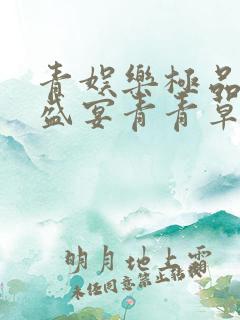 青娱乐极品
盛宴青青草
明月地上霜
未经同意禁止转载